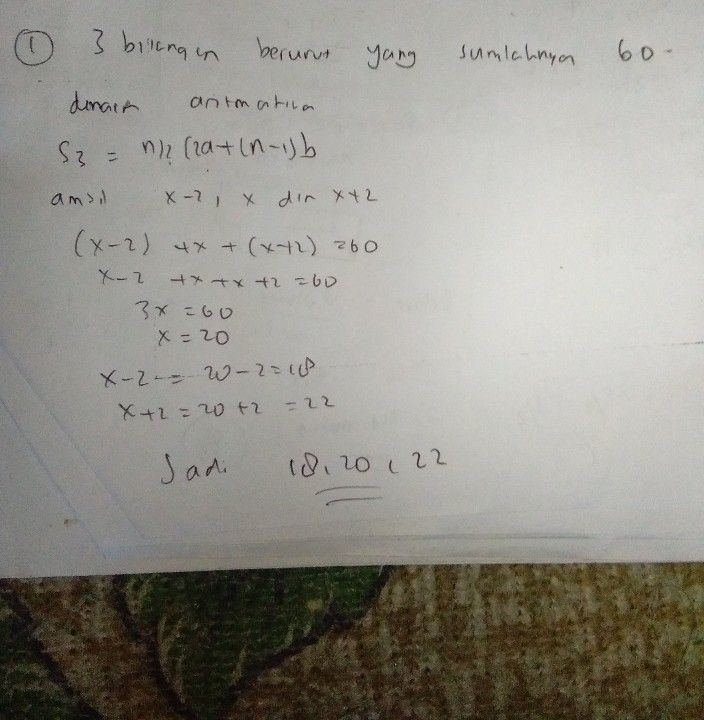 ① 3 bilangan berurut yang jumlahnya 60.
aritmatika
S3 = n/2 (2a+(n-1)b
ambil x-2, x dan x+2
(x-2) +x + (x+2) =60
x-2 +x+x+2 =60
3x =60
x = 20
x-2 = 20-2=18
x+2 = 20+2 =22
Jadi 18, 20, 22